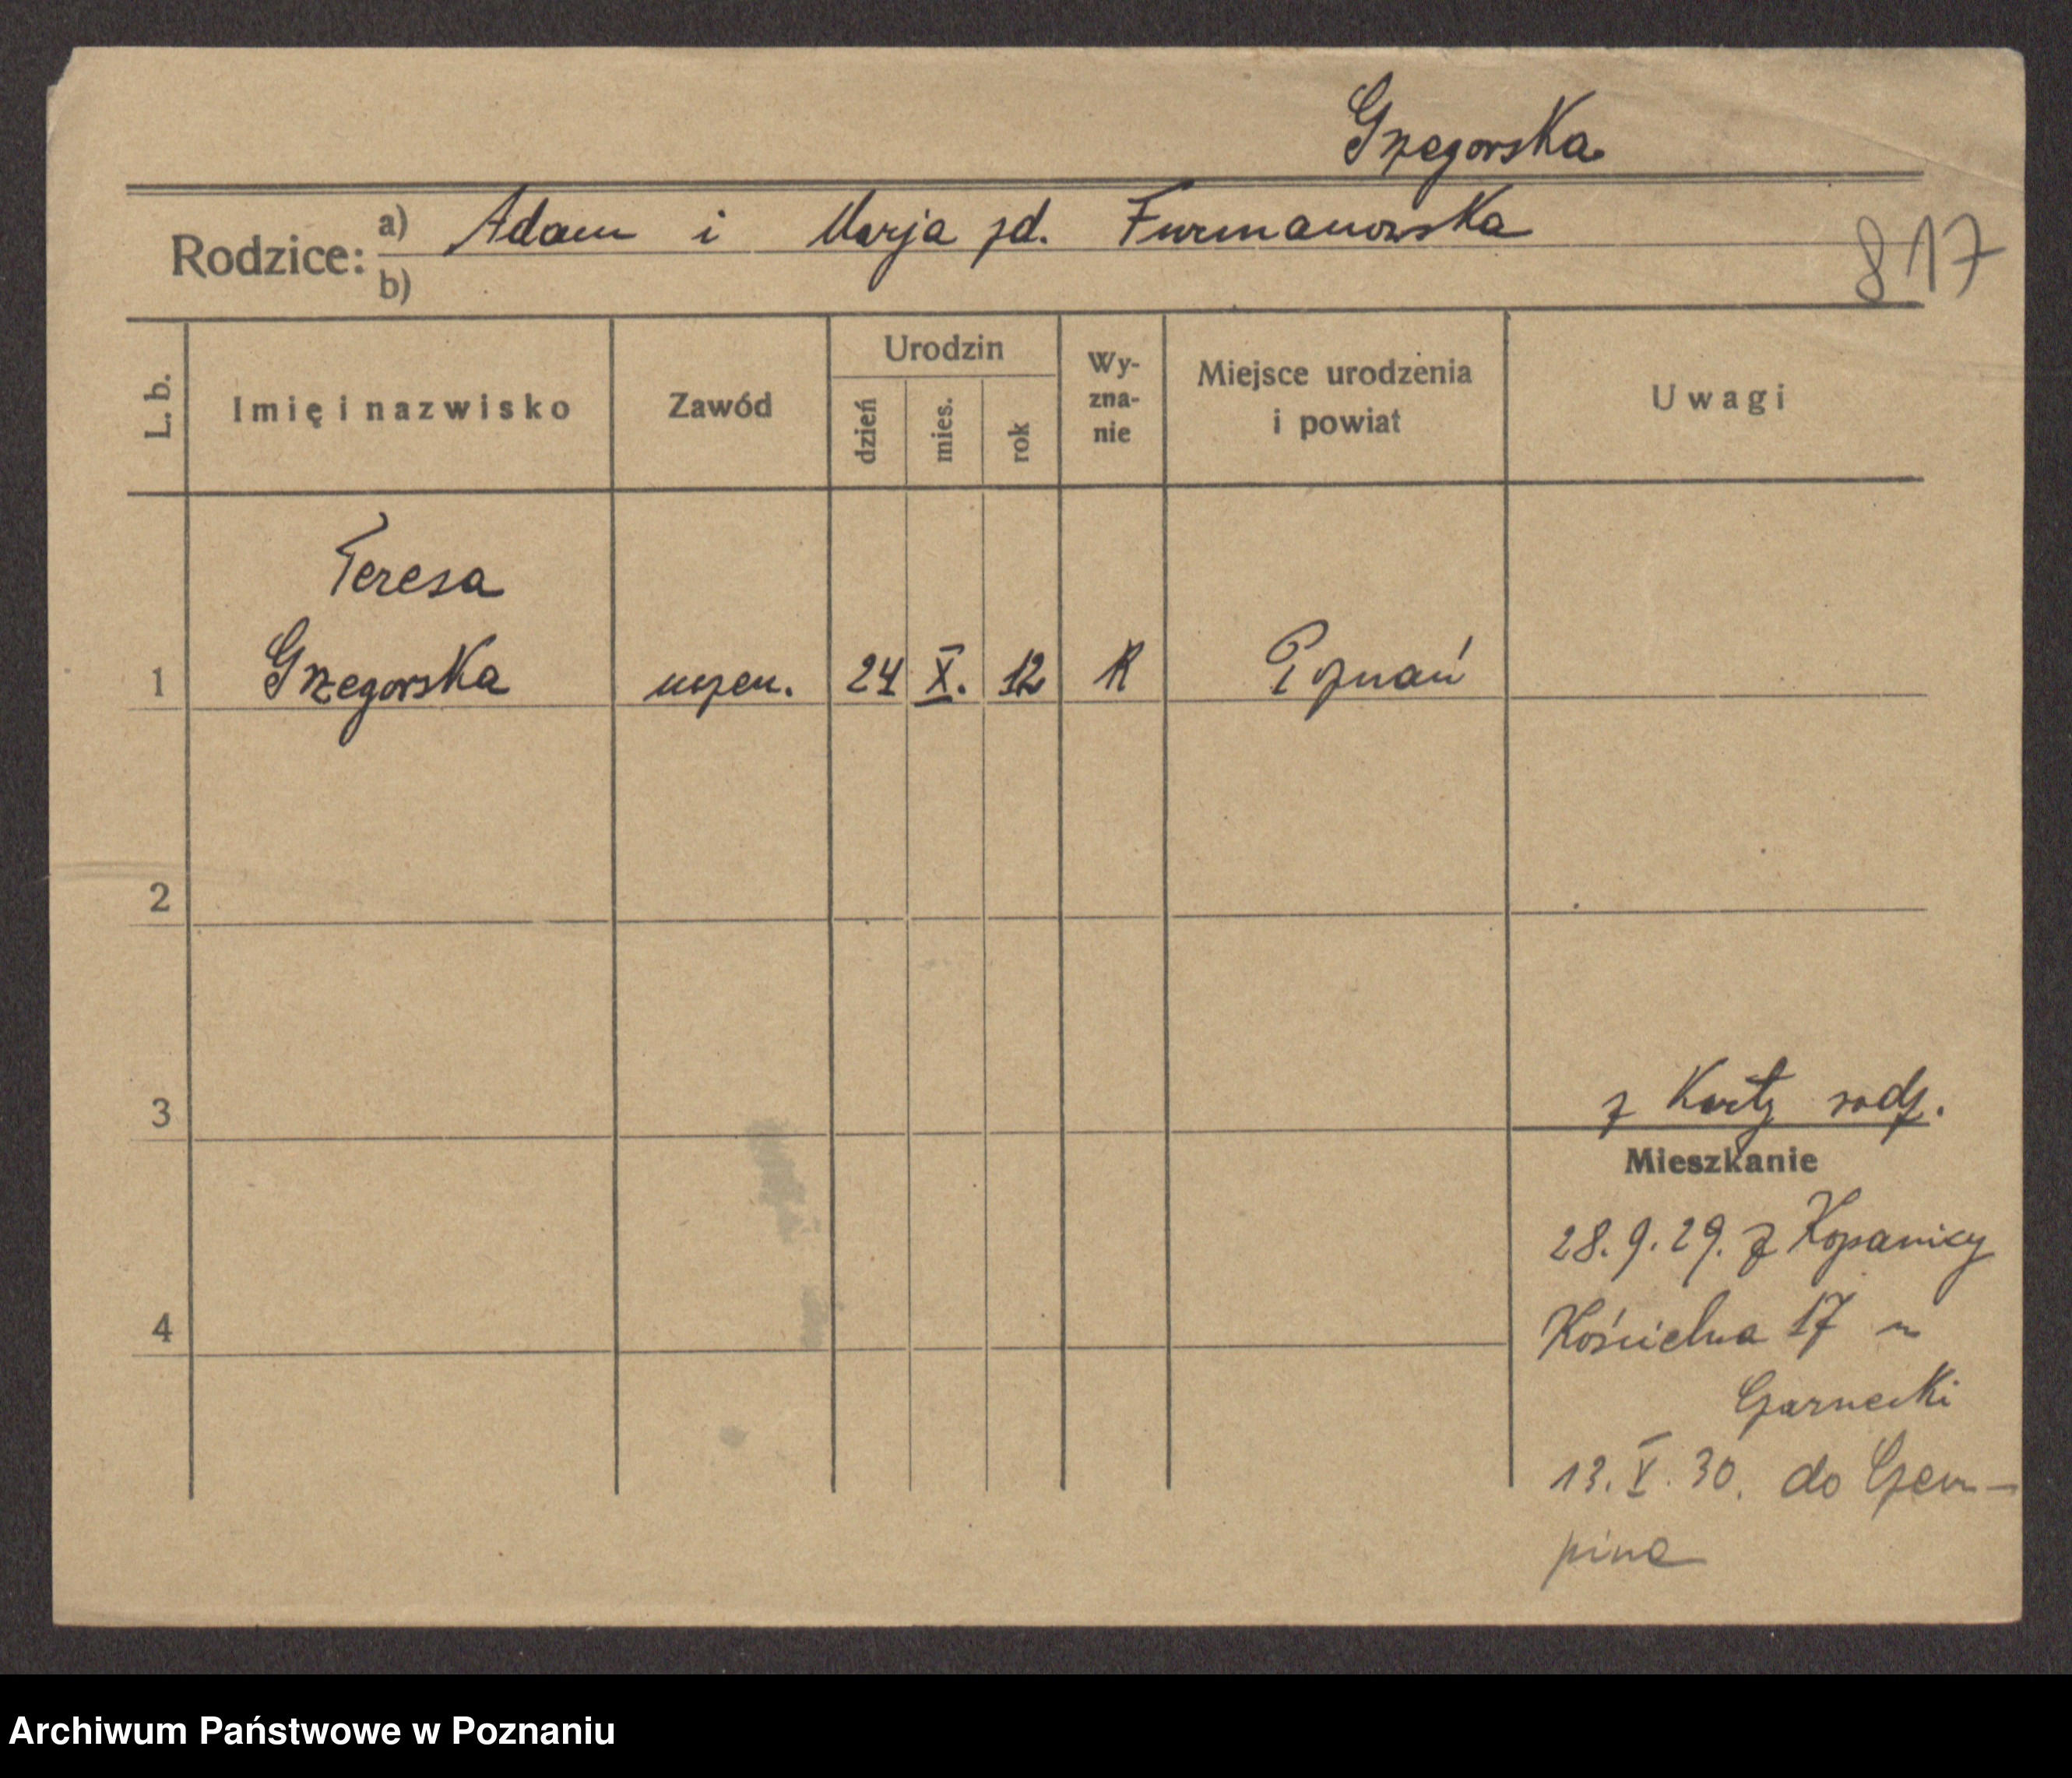 Grzegorska
Rodzice: a) Adam i Marja zd. Furmanowska
b)
817
L. b. Imię i nazwisko Zawód Urodzin dzień mies. rok Wy-zna-nie Miejsce urodzenia i powiat Uwagi
Teresa
1 Grzegorska uczen. 24 X. 12 R Poznań
2
3
z Karty rodz.
Mieszkanie
28.9.29. z Kopanicy
4
Kościelna 17 u
Czarnecki
13. V. 30. do Czem-
pina
Archiwum Państwowe w Poznaniu